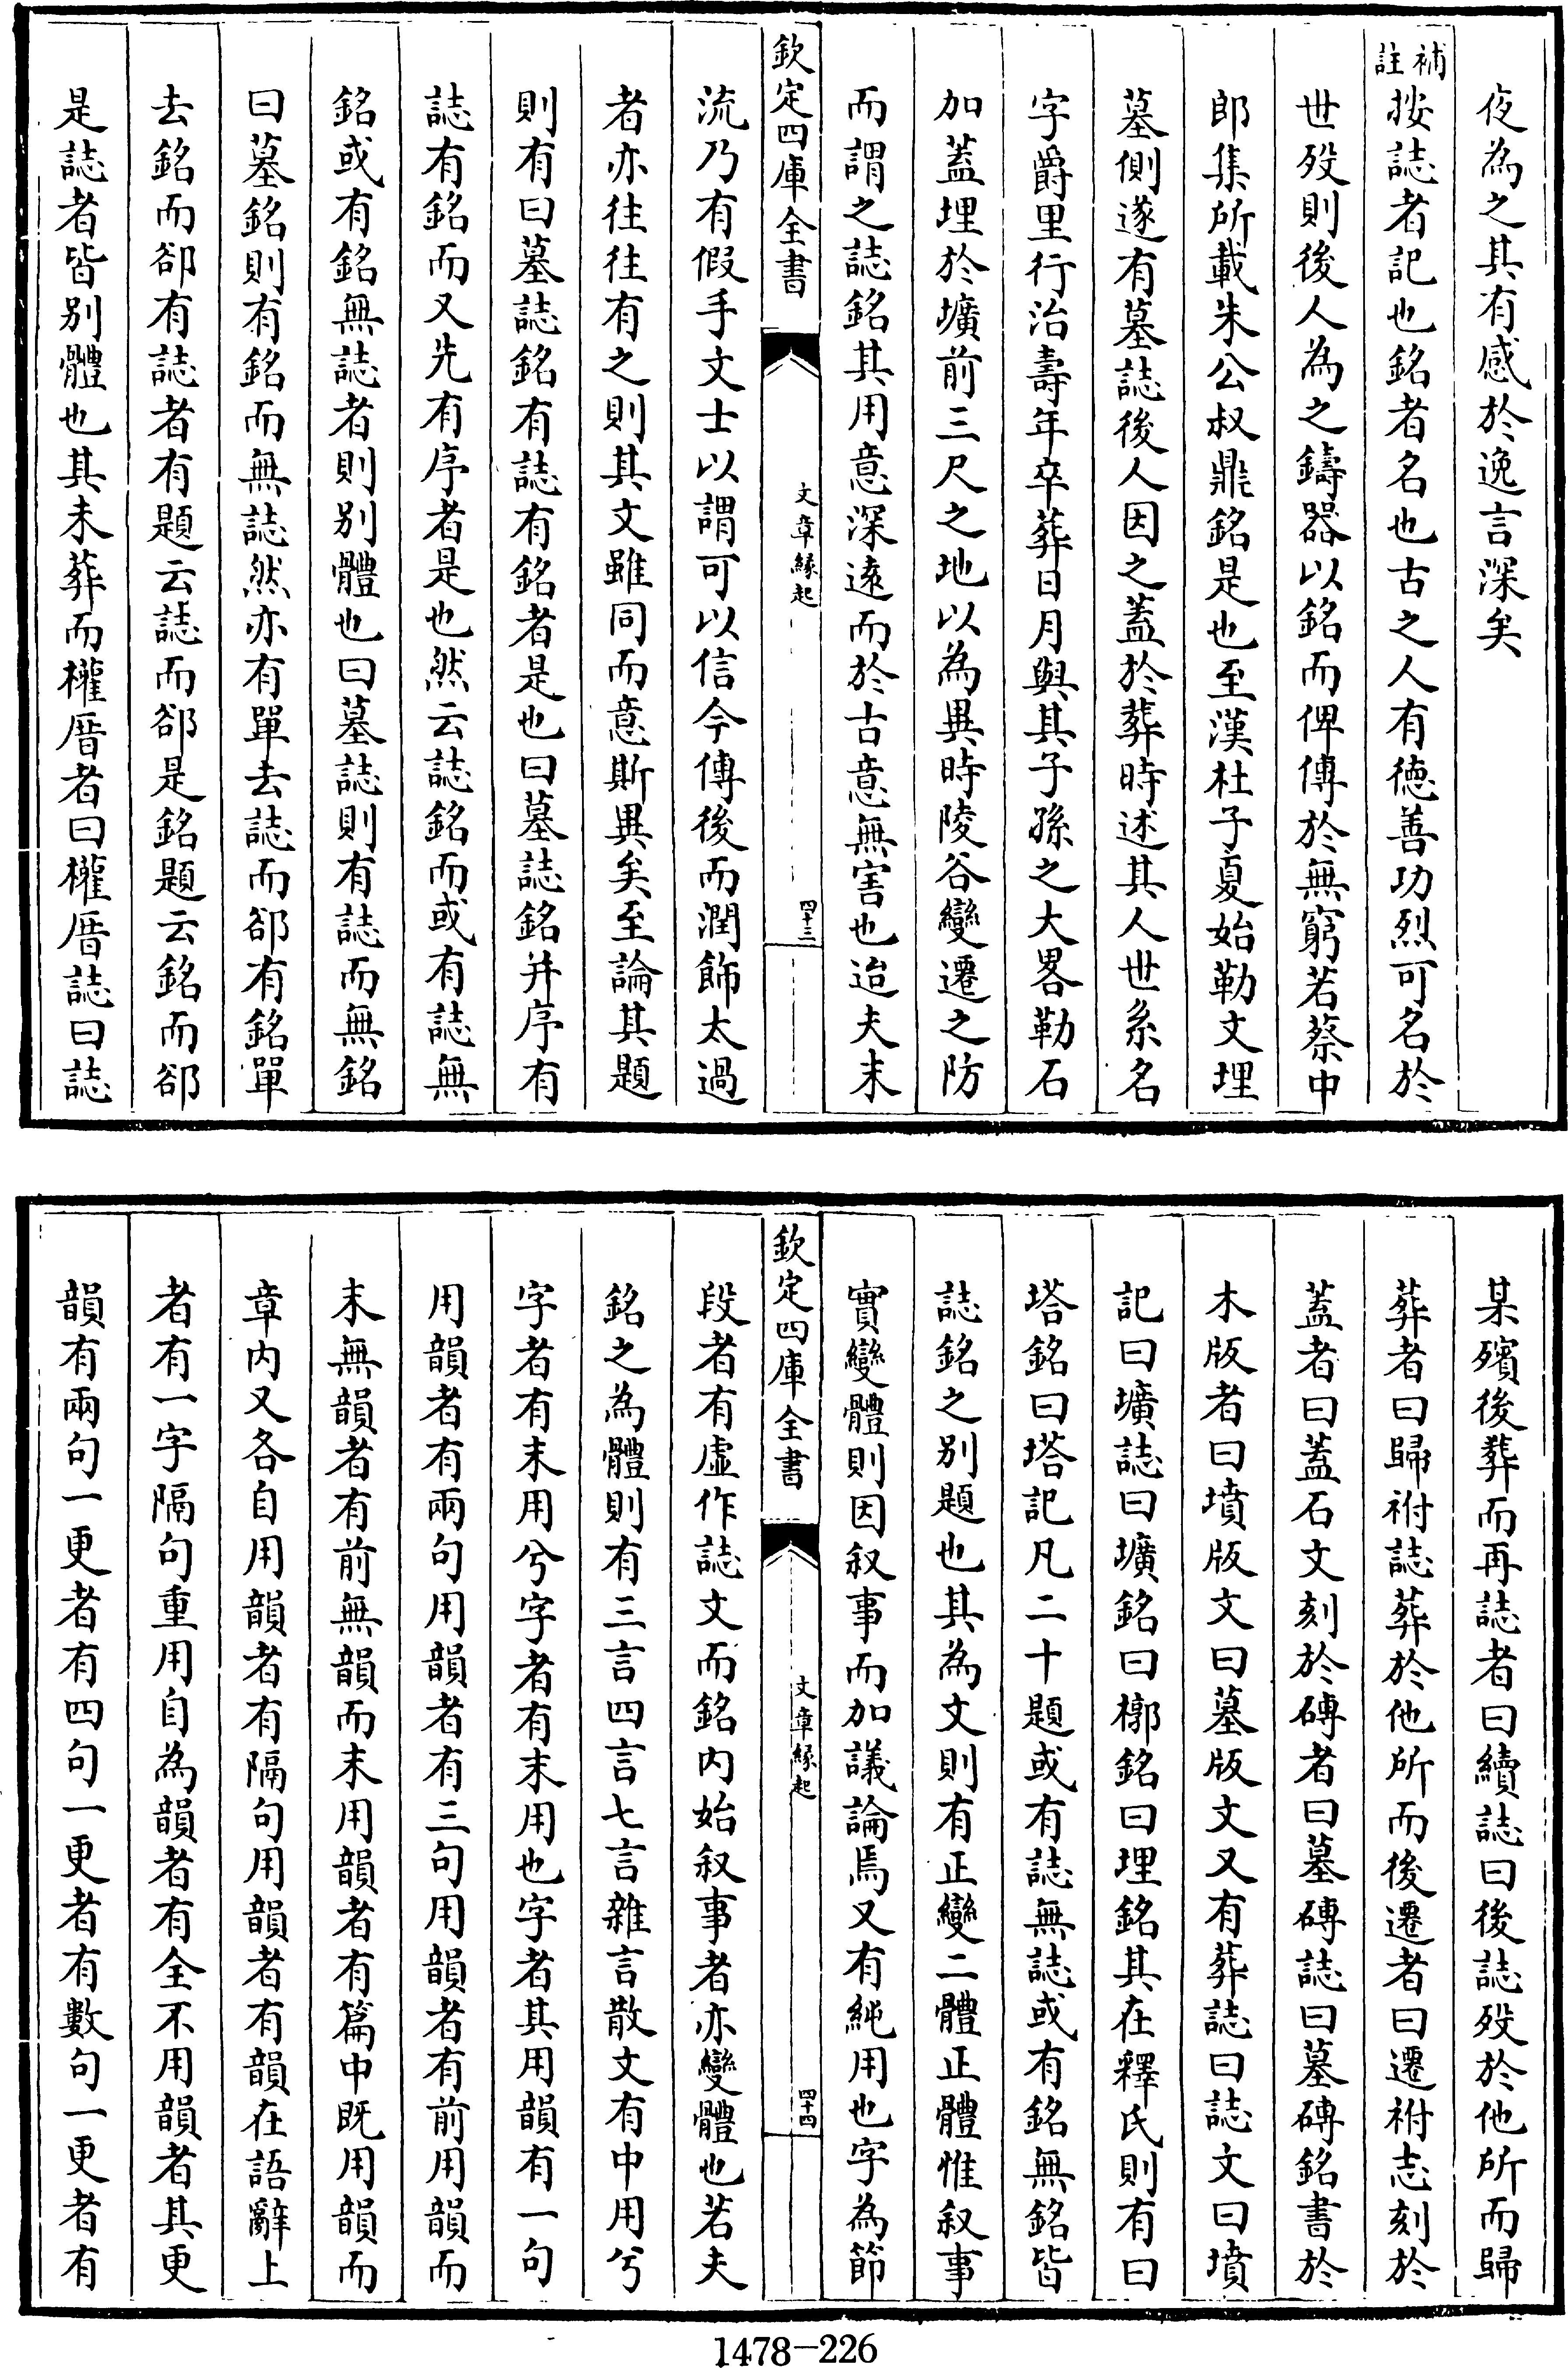 夜為之其有感於逸言深矣
補註按誌者記也銘者名也古之人有德善功烈可名於
世歿則後人為之鑄器以銘而俾傳於無窮若蔡中
郎集所載朱公叔鼎銘是也至漢杜子夏始勒文埋
墓側遂有墓誌後人因之蓋於葬時述其人世系名
字爵里行治壽年卒葬日月與其子孫之大畧勒石
加蓋埋於壙前三尺之地以為異時陵谷變遷之防
而謂之誌銘其用意深遠而於古意無害也迨夫末
欽定四庫全書
文章緣起
四十三
流乃有假手文士以謂可以信今傳後而潤飾太過
者亦往往有之則其文雖同而意斯異矣至論其題
則有曰墓誌銘有誌有銘者是也曰墓誌銘并序有
誌有銘而又先有序者是也然云誌銘而或有誌無
銘或有銘無誌者則別體也曰墓誌則有誌而無銘
曰墓銘則有銘而無誌然亦有單去誌而郤有銘單
去銘而郤有誌者有題云誌而郤是銘題云銘而郤
是誌者皆別體也其未葬而權厝者曰權厝誌曰誌
某殯後葬而再誌者曰續誌曰後誌歿於他所而歸
葬者曰歸祔誌葬於他所而後遷者曰遷祔志刻於
蓋者曰蓋石文刻於磚者曰墓磚誌曰墓磚銘書於
木版者曰墳版文曰墓版文又有葬誌曰誌文曰墳
記曰壙誌曰壙銘曰槨銘曰埋銘其在釋氏則有曰
塔銘曰塔記凡二十題或有誌無誌或有銘無銘皆
誌銘之別題也其為文則有正變二體正體惟叙事
實變體則因叙事而加議論焉又有純用也字為節
欽定四庫全書
文章緣起
四十四
段者有虛作誌文而銘內始叙事者亦變體也若夫
銘之為體則有三言四言七言雜言散文有中用兮
字者有末用兮字者有末用也字者其用韻有一句
用韻者有兩句用韻者有三句用韻者有前用韻而
末無韻者有前無韻而末用韻者有篇中既用韻而
章內又各自用韻者有隔句用韻者有韻在語辭上
者有一字隔句重用自為韻者有全不用韻者其更
韻有兩句一更者有四句一更者有數句一更者有
1478-226